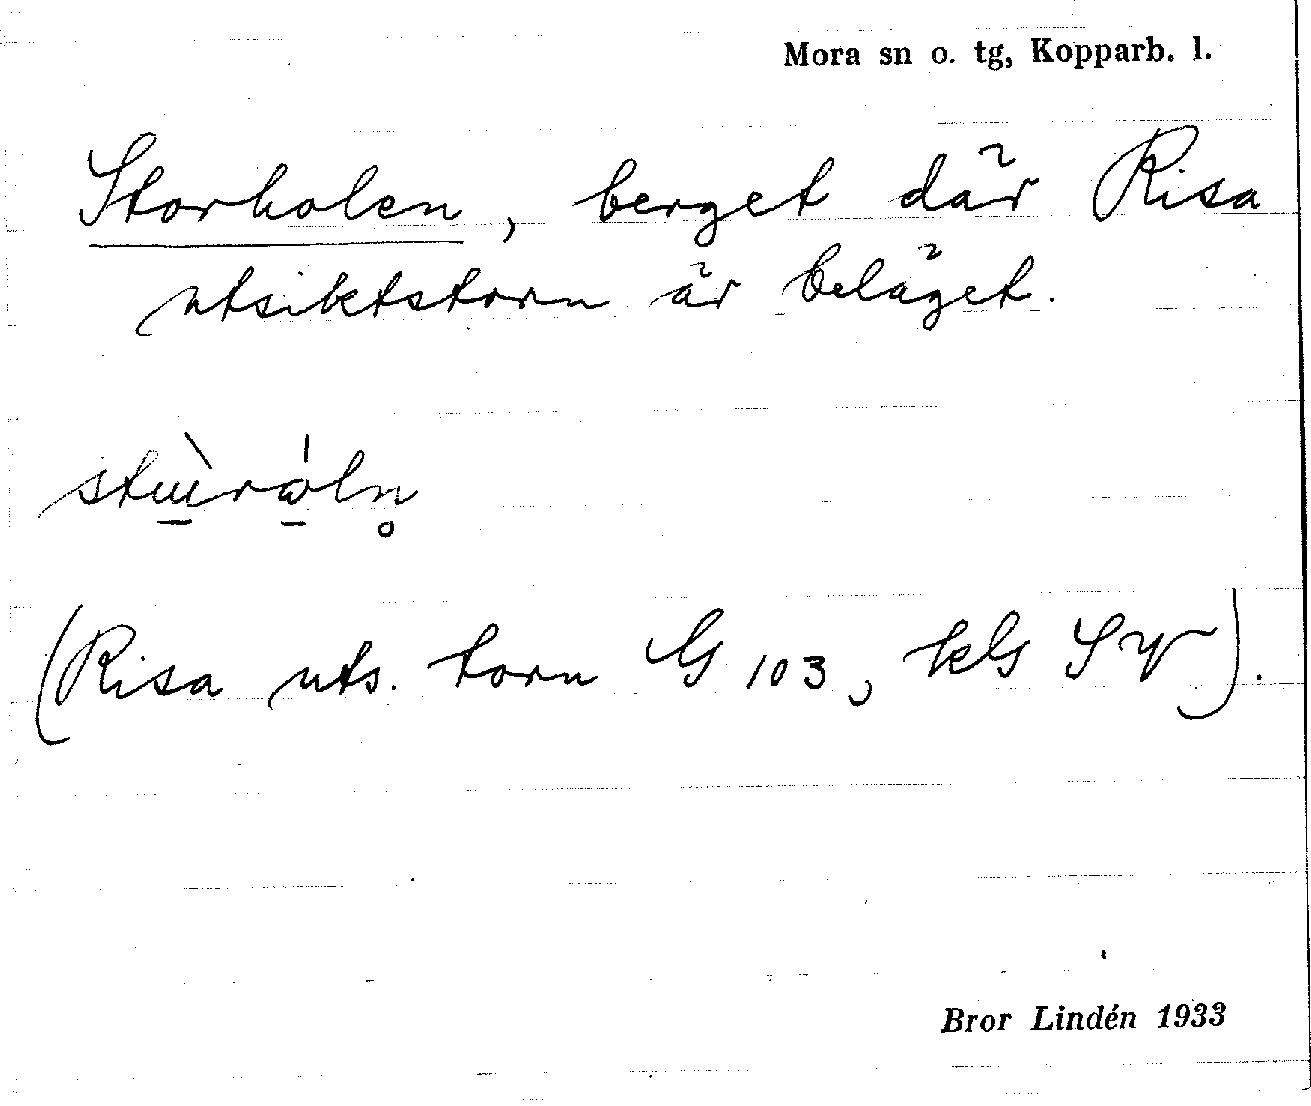 Mora sn o. tg, Kopparb. l.
Storholen, berget där Risa
utsiktstorn är beläget.
(Risa uts. torn G 103, kG SV).
Bror Lindén 1933